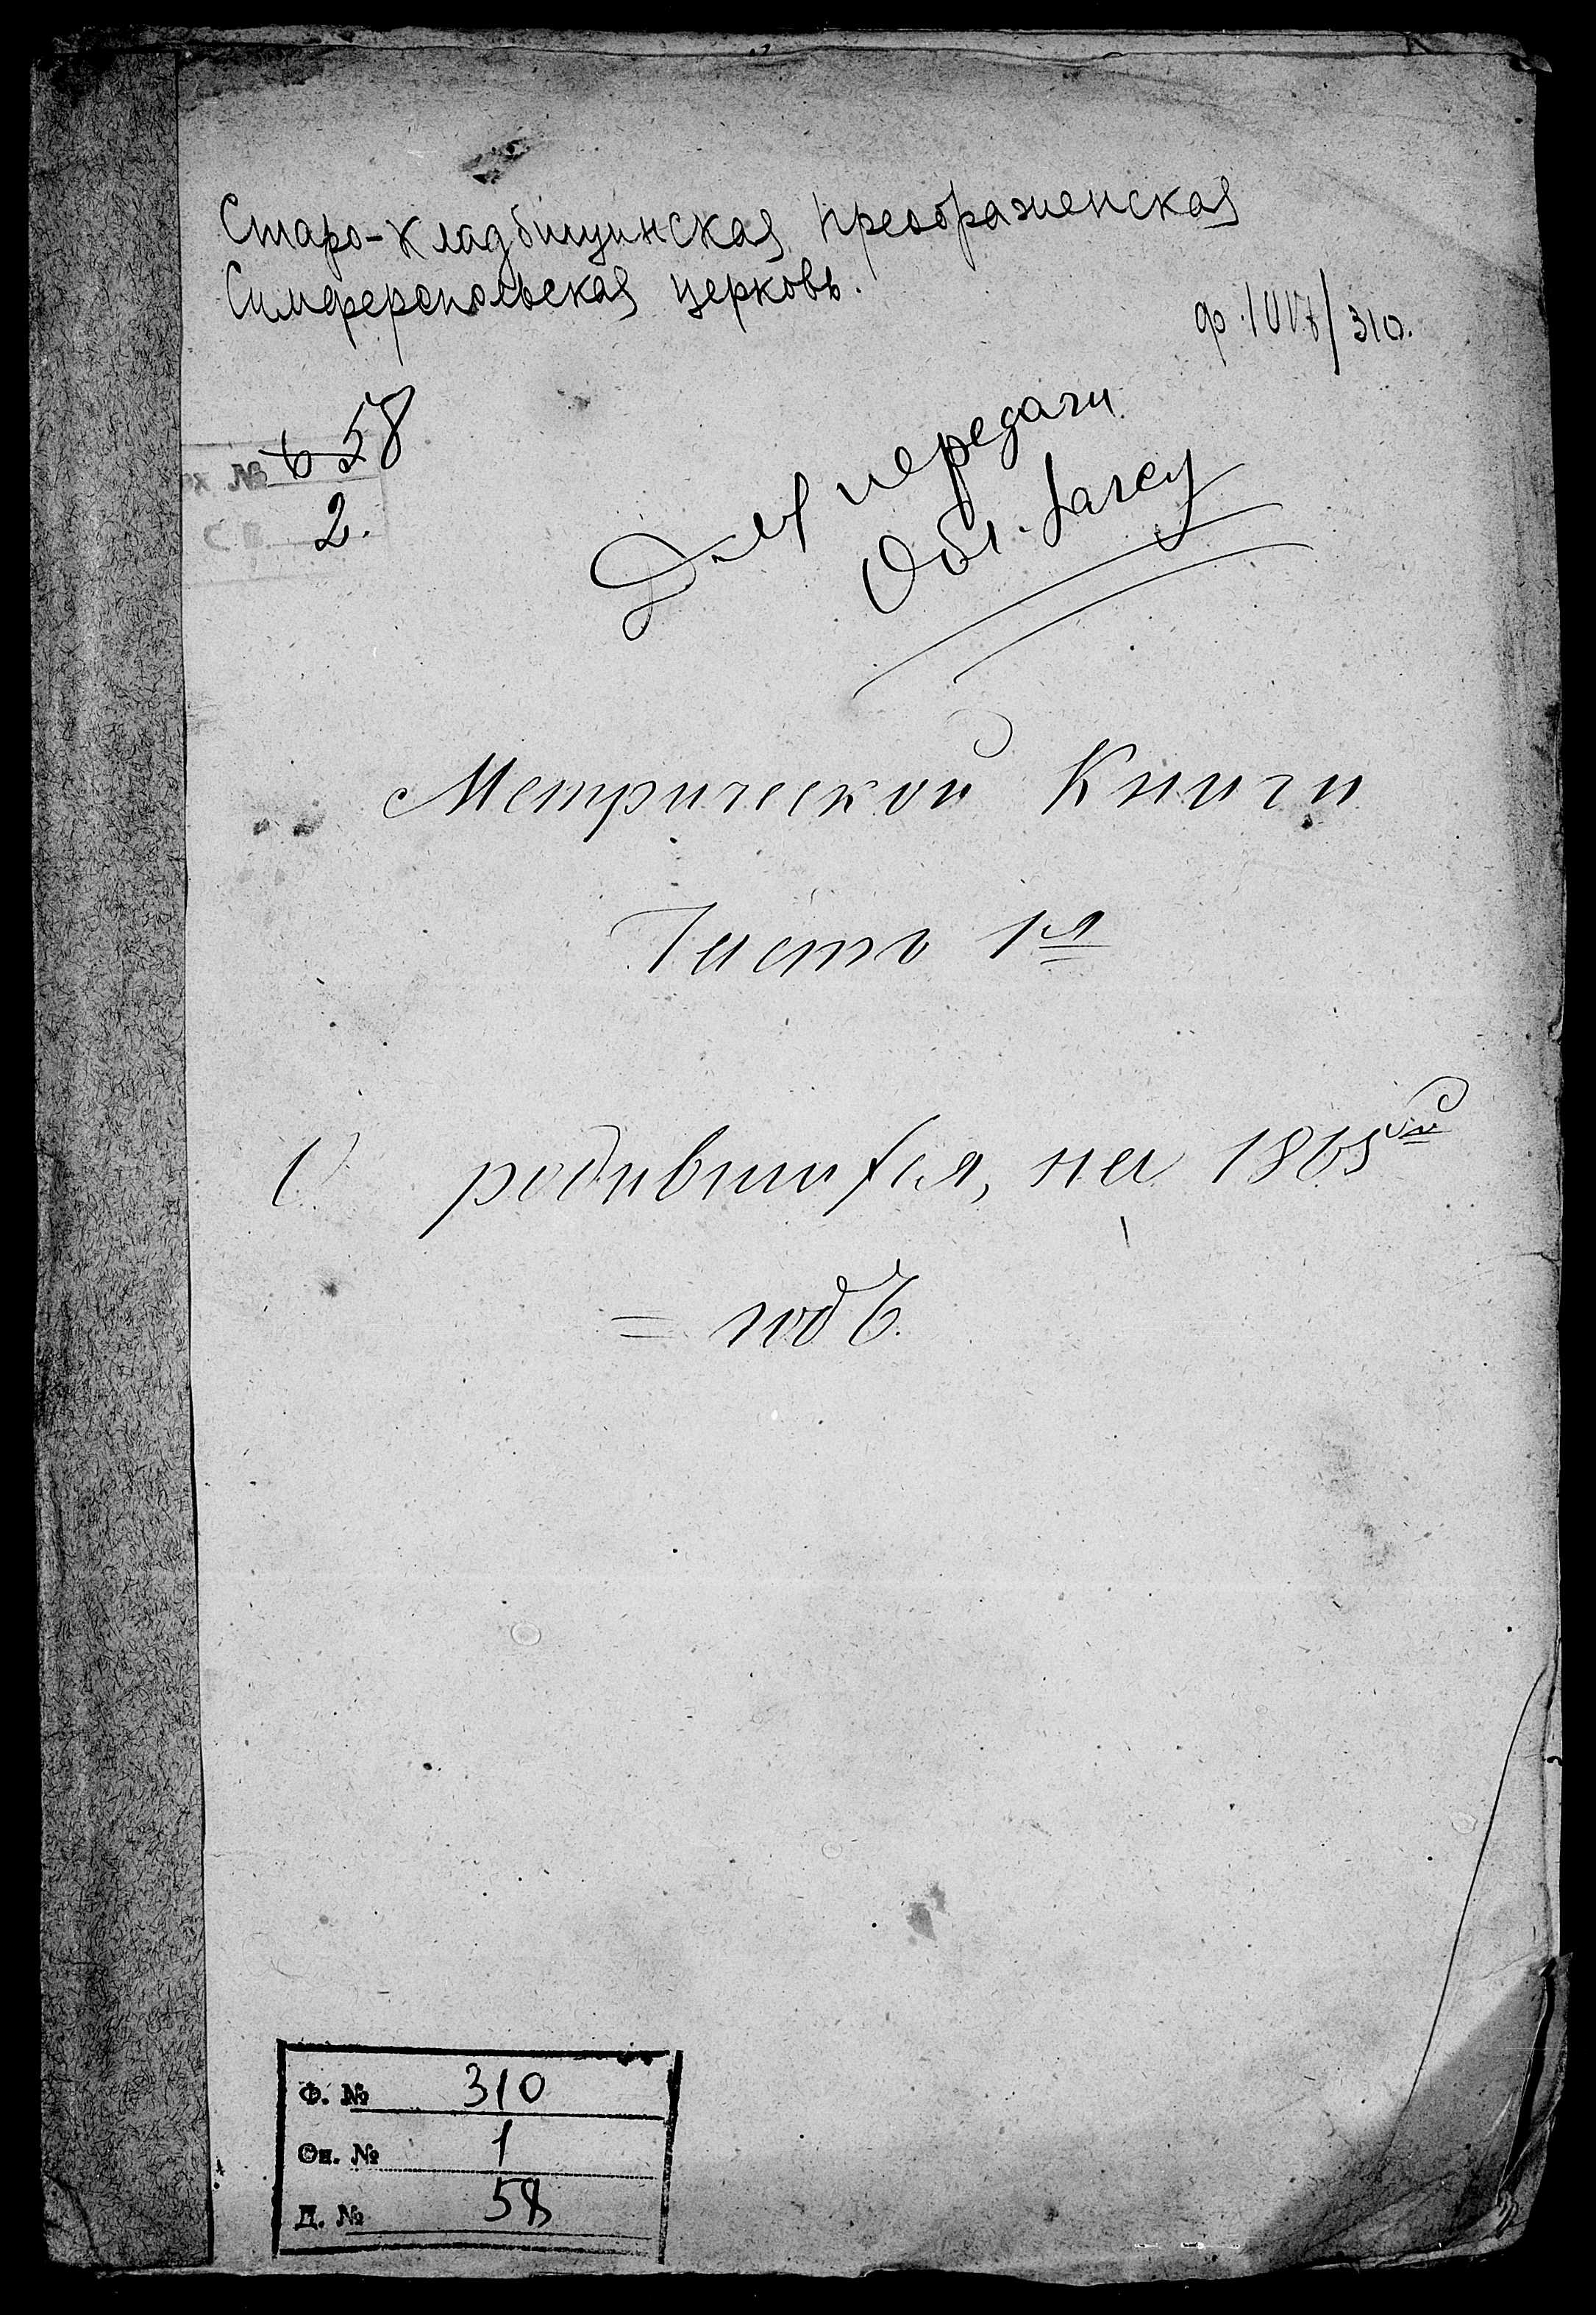 Старо-Кладбищинская Преображенская
Симферопольская церковь.
ф. /310.
58
рх №
2.
Для передачи
Обл. Загсу
Метрической Книги
Часть 1я
О родившихся, на 1865ой
= годъ.
Ф. № 310
Оп. № 1
Д. № 58